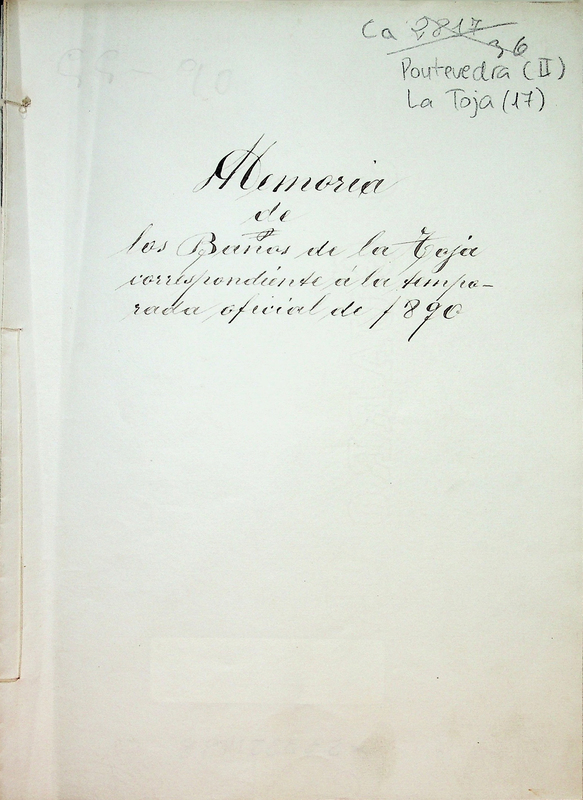 Ca 2817
36
Pontevedra (II)
La Toja (17)
Memoria
de
los Baños de la Toja
correspondiente á la tempo-
rada oficial de 1890